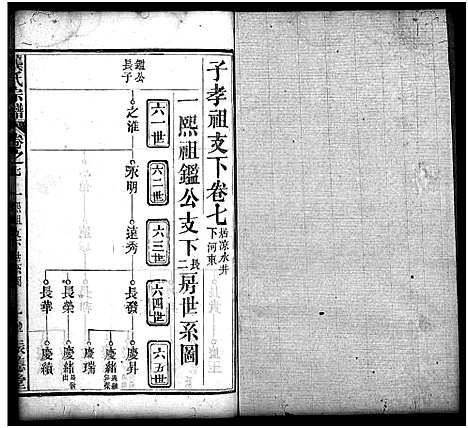 子孝祖支下卷七 居涼水井下河東
一熙祖鑑公支下長二房世系圖
六一世
六二世
六三世
六四世
六五世
鑑公長子
之淮
永明
遠秀
長發
長榮
長華
慶昇
慶緒
慶瑞
慶緒
慶績
氏宗譜
卷之七